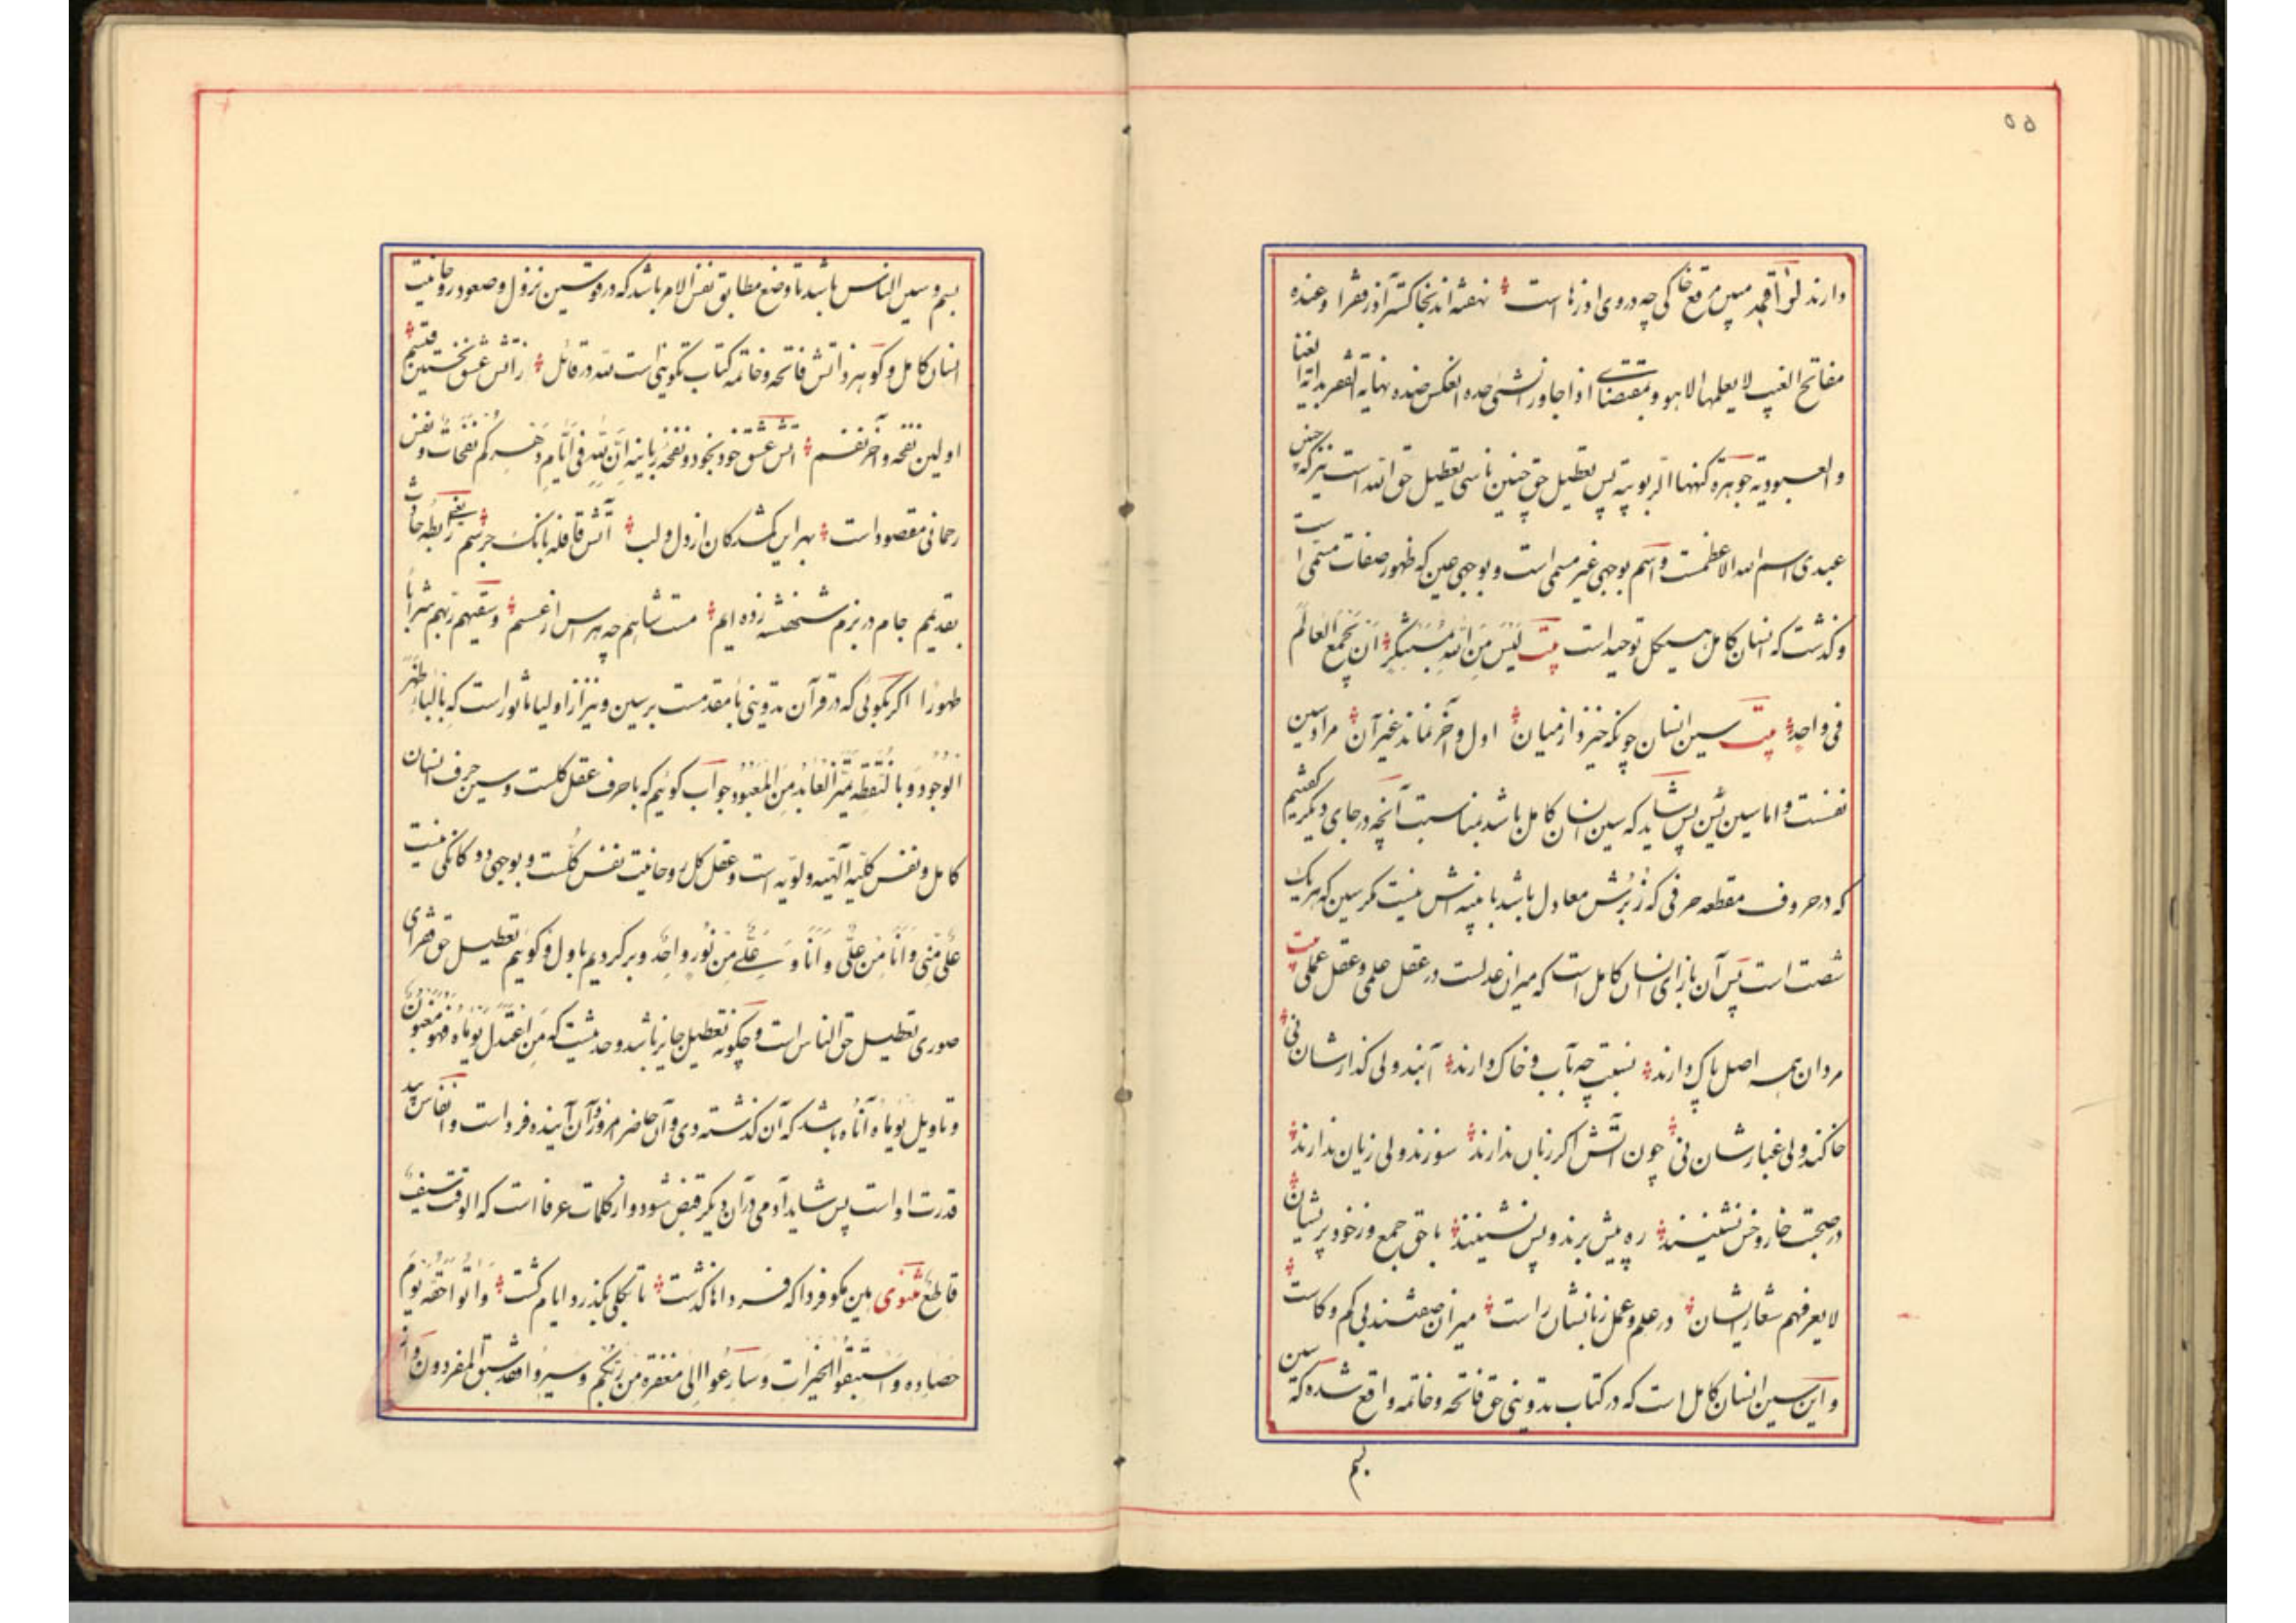 ۵۵
دارند لمؤلفه مبین مرقع خاکی چه در وی اوزنها است نهفته‌اند بخاکستر آذر فقرا و عنده
مفاتح الغیب لا یعلمها الا هو و بمقتضای اذا جاوز الشیء حده انعکس ضده نهایة الفقر بدایة الغنا
و العبودیة جوهرة کنهها الربوبیة پس تعطیل حق چنین ناسی تعطیل حق الله است نیز که چنین
عبدی اسم الله الاعظمست و اسم بوجهی غیر مسمی است و بوجهی عین که ظهور صفات مسمی است
و گذشت که انسان کامل هیکل توحید است بیت لیس من الله بمستنکر ان یجمع العالم
فی واحد بیت سین انسان چونکه خیزد از میان اول و آخر نماند غیر آن مراد سین
نفست و اما سین یس پس شاید که سین انسان کامل باشد بمناسبت آنچه در جای دیگر گفتیم
که در حروف مقطعه حرفی که زبرش معادل باشد با بینه‌اش نیست مگر سین که هر یک
شصت است پس آن بازای انسان کامل است که میزان عدلست در عقل علمی و عقل عملی بیت
مردان همه اصل پاک دارند نسبت چه بآب و خاک دارند آبند ولی گذارشان نی
خاکند ولی غبارشان نی چون آتش اگر زبان ندارند سوزند ولی زیان ندارند
در صحبت خار و خس نشینند ره پیش برند و پس نشینند با حق جمع و ز خود پریشان
لا یعرفهم شعار ایشان در علم و عمل زبانشان راست میزان صفتند بی کم و کاست
و این سین انسان کامل است که در کتاب تدوینی حق فاتحه و خاتمه واقع شده که سین
بسم
بسم و سین الناس باشد تا وضع مطابق نفس الامر باشد که در قوسین نزول و صعود روحانیت
انسان کامل و گوهر ذاتش فاتحه و خاتمه کتاب تکوینی است لله در قائل ز آتش عشق نخستین قبسم
اولین نفحه و آخر نفسم آتش عشق خود بخود و نفحه ربانیه ان لله فی ایام دهرکم نفحات و نفس
رحمانی مقصود است بهر این گمشدگان از دل و لب آتش قافله بانگ جرسم یعنی رابطه حادث
بقدیمم جام در بزم شهنشه زده‌ایم مست شاهیم چه هراس از عسسم و سقیهم ربهم شرابا
طهورا اگر بگوئی که در قرآن تدوینی با مقدمست بر سین و نیز از اولیا ماثور است که بالباء ظهر
الوجود و بالنقطه تمیز العابد من المعبود جواب گوئیم که با حرف عقل کلست و سین حرف انسان
کامل و نفس کلیه الهیه ولویه است و عقل کل روحانیت نفس کلست و بوجهی دوگانگی نیست
علی منی و انا من علی و انا و علی من نور واحد و برگردیم باول و گوئیم تعطیل حق فقرای
صوری تعطیل حق الناس است و چگونه تعطیل جایز باشد و حدیثست که من اعتدل یوماه فهو مغبون
و تاویل یوماه آناه باشد که آن گذشته دی و آن حاضر امروز و آن آینده فردا است و انفاس بید
قدرت او است پس شاید آدمی در آن دیگر قبض شود و از کلمات عرفا است که الوقت سیف
قاطع مثنوی هین مگو فردا که فرداها گذشت تا بکلی نگذرد ایام کشت و آتوا حقه یوم
حصاده و استبقوا الخیرات و سارعوا الی مغفرة من ربکم و سیروا فقد سبق المفردون